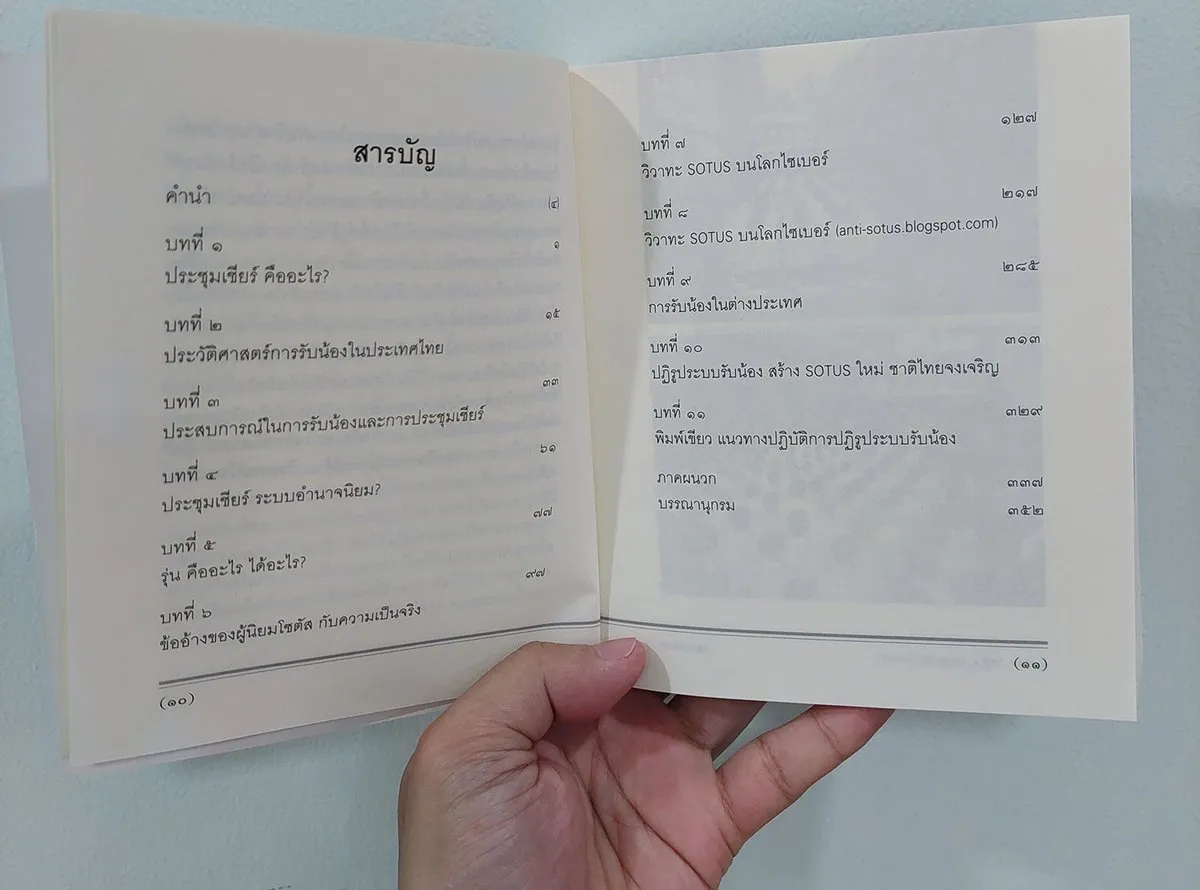 สารบัญ
คำนำ (๔)
บทที่ ๑ ๑
ประชุมเชียร์ คืออะไร?
บทที่ ๒ ๑๕
ประวัติศาสตร์การรับน้องในประเทศไทย
บทที่ ๓ ๓๓
ประสบการณ์ในการรับน้องและการประชุมเชียร์
บทที่ ๔ ๖๑
ประชุมเชียร์ ระบบอำนาจนิยม?
บทที่ ๕ ๗๗
รุ่น คืออะไร ได้อะไร?
บทที่ ๖ ๙๗
ข้ออ้างของผู้นิยมโซตัส กับความเป็นจริง
(๑๐)
บทที่ ๗ ๑๒๗
วิวาทะ SOTUS บนโลกไซเบอร์
บทที่ ๘ ๒๑๗
วิวาทะ SOTUS บนโลกไซเบอร์ (anti-sotus.blogspot.com)
บทที่ ๙ ๒๘๕
การรับน้องในต่างประเทศ
บทที่ ๑๐ ๓๑๓
ปฏิรูประบบรับน้อง สร้าง SOTUS ใหม่ ชาติไทยจงเจริญ
บทที่ ๑๑ ๓๒๙
พิมพ์เขียว แนวทางปฏิบัติการปฏิรูประบบรับน้อง
ภาคผนวก ๓๓๗
บรรณานุกรม ๓๕๒
(๑๑)